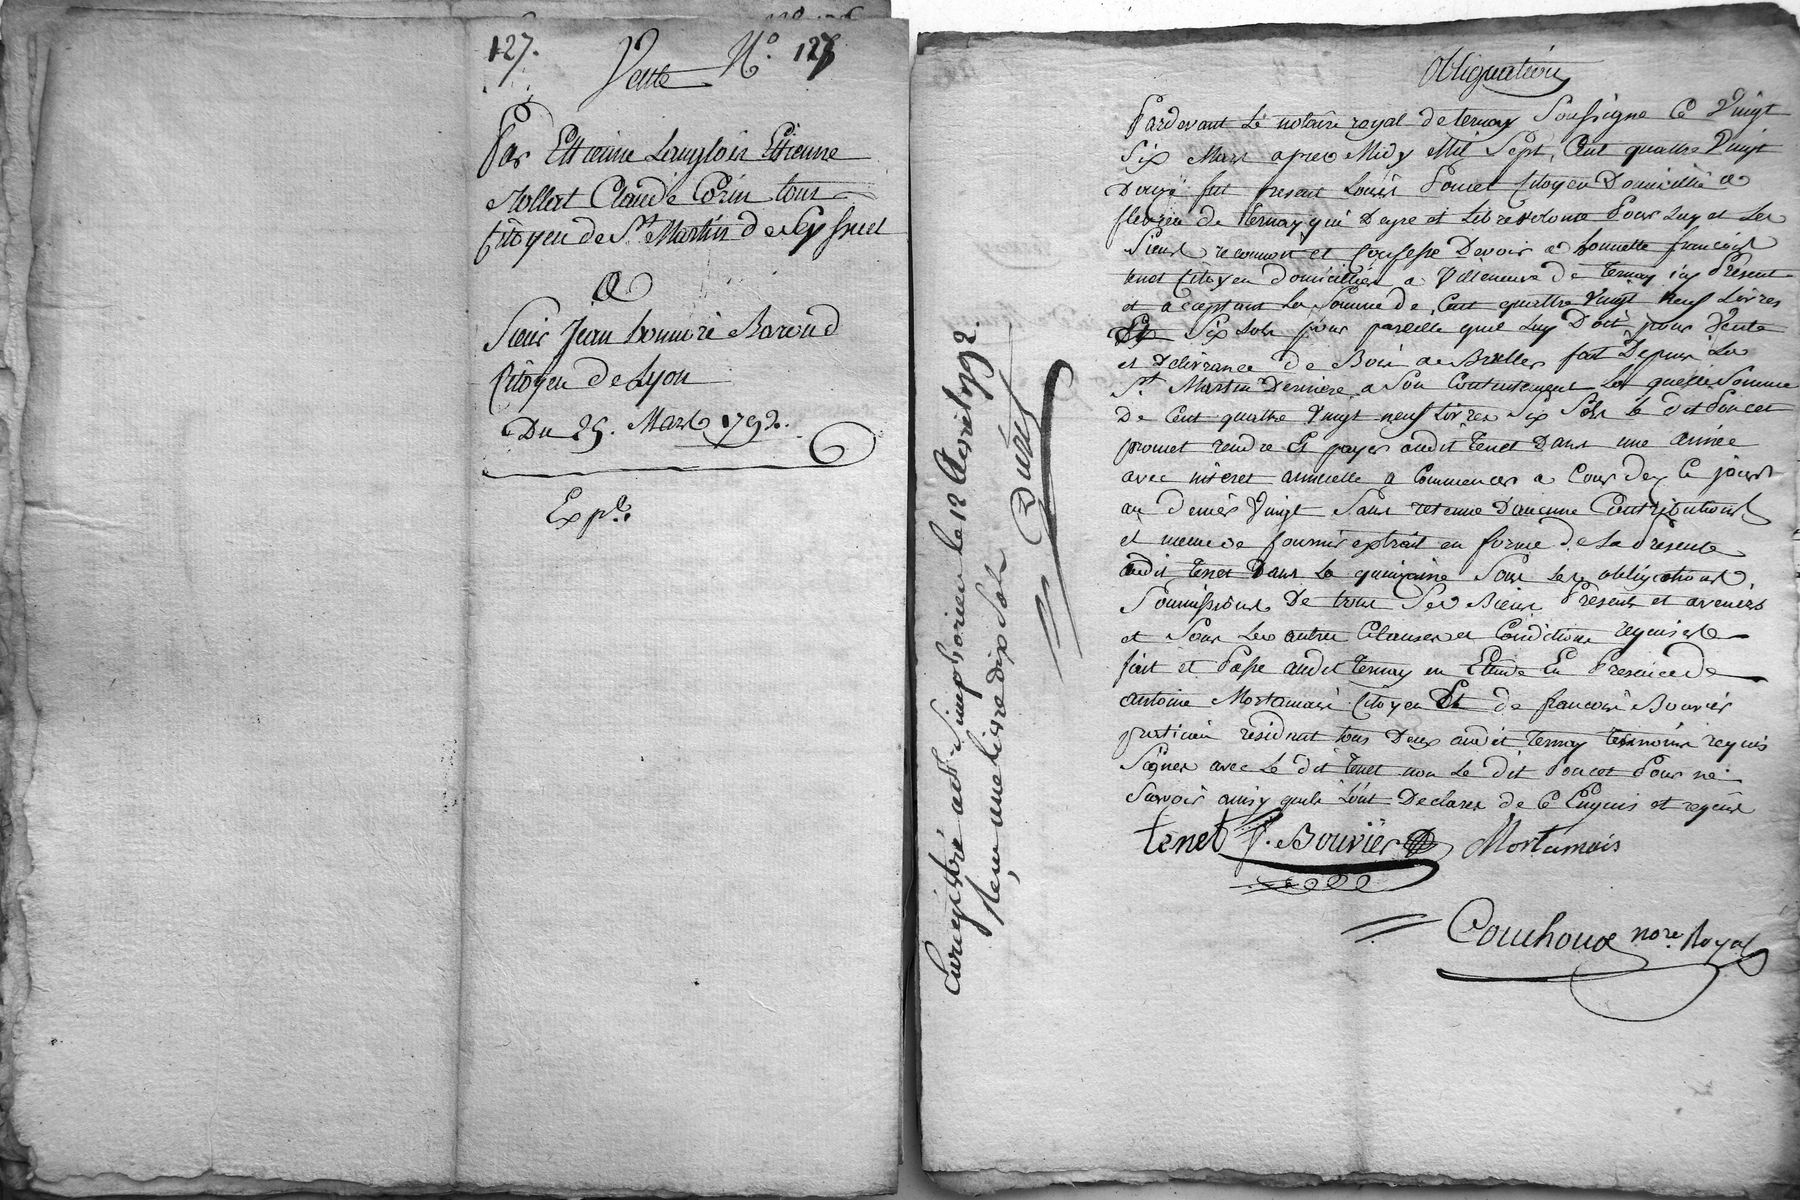 127. Vente N.º 127
Par Ettienne Langlois Ettienne
Mollat Claude Corin tous
Citoyen de St. Martin de Seyssuel
a
Sieur Jean honnoré Barond
Citoyen de Lyon
Du 25. Mars 1792.
Exp.
Obligation
Pardevant Le notaire royal de ternay Soussigne Ce Vingt
Six Mars apres Midy Mil Sept, Cent quattre Vingt
Douze fut present Louis Poncet Citoyen Domicillié a
de Ternay qui De gre et Libre volonté Pour Luy et Les
Siens reconnoit et Confesse Devoir a honnette francois
tenet Citoyen domicillier a Villeneuve de Ternay icy Present
et acceptant La Somme de Cent quattre Vingt neuf Livres
Six Sols pour pareille quil Luy Doit pour Vente
et Delivrance de Bois de fait Depuis La
St. Martin Derniere a Son Contentement La quelle Somme
De Cent quattre Vingt neuf Livres Six Sols Le dit Poncet
promet rendre Et payer audit tenet Dans une année
avec interet annuelle a Commencer a Cour dez Ce jour
au denier Vingt Sans retenue Daucune Contributions
et meme de fournir extrait en forme de La Presente
audit tenet Dans La quinzaine Sous Les obligations,
Soumissions De tous Ses Biens Presents et avenirs
et Sous Les autres Clauses et Conditions requises
fait et Passe audit Ternay en Etude En Presence de
antoine Mortamais Citoyen Et de francois Bouvier
praticien residnat tous Deux audit Ternay temoins requis
Signer avec Le dit tenet non Le dit Poncet Pour ne
Savoir ainsy quils Lont Declarer de Ce Enquis et requis
tenet f. Bouvier Mortamais
Couchoud nore. Royal
Enregistré a St. Simphorien le 12 Avril 1792.
Reçu une livre dix Sols